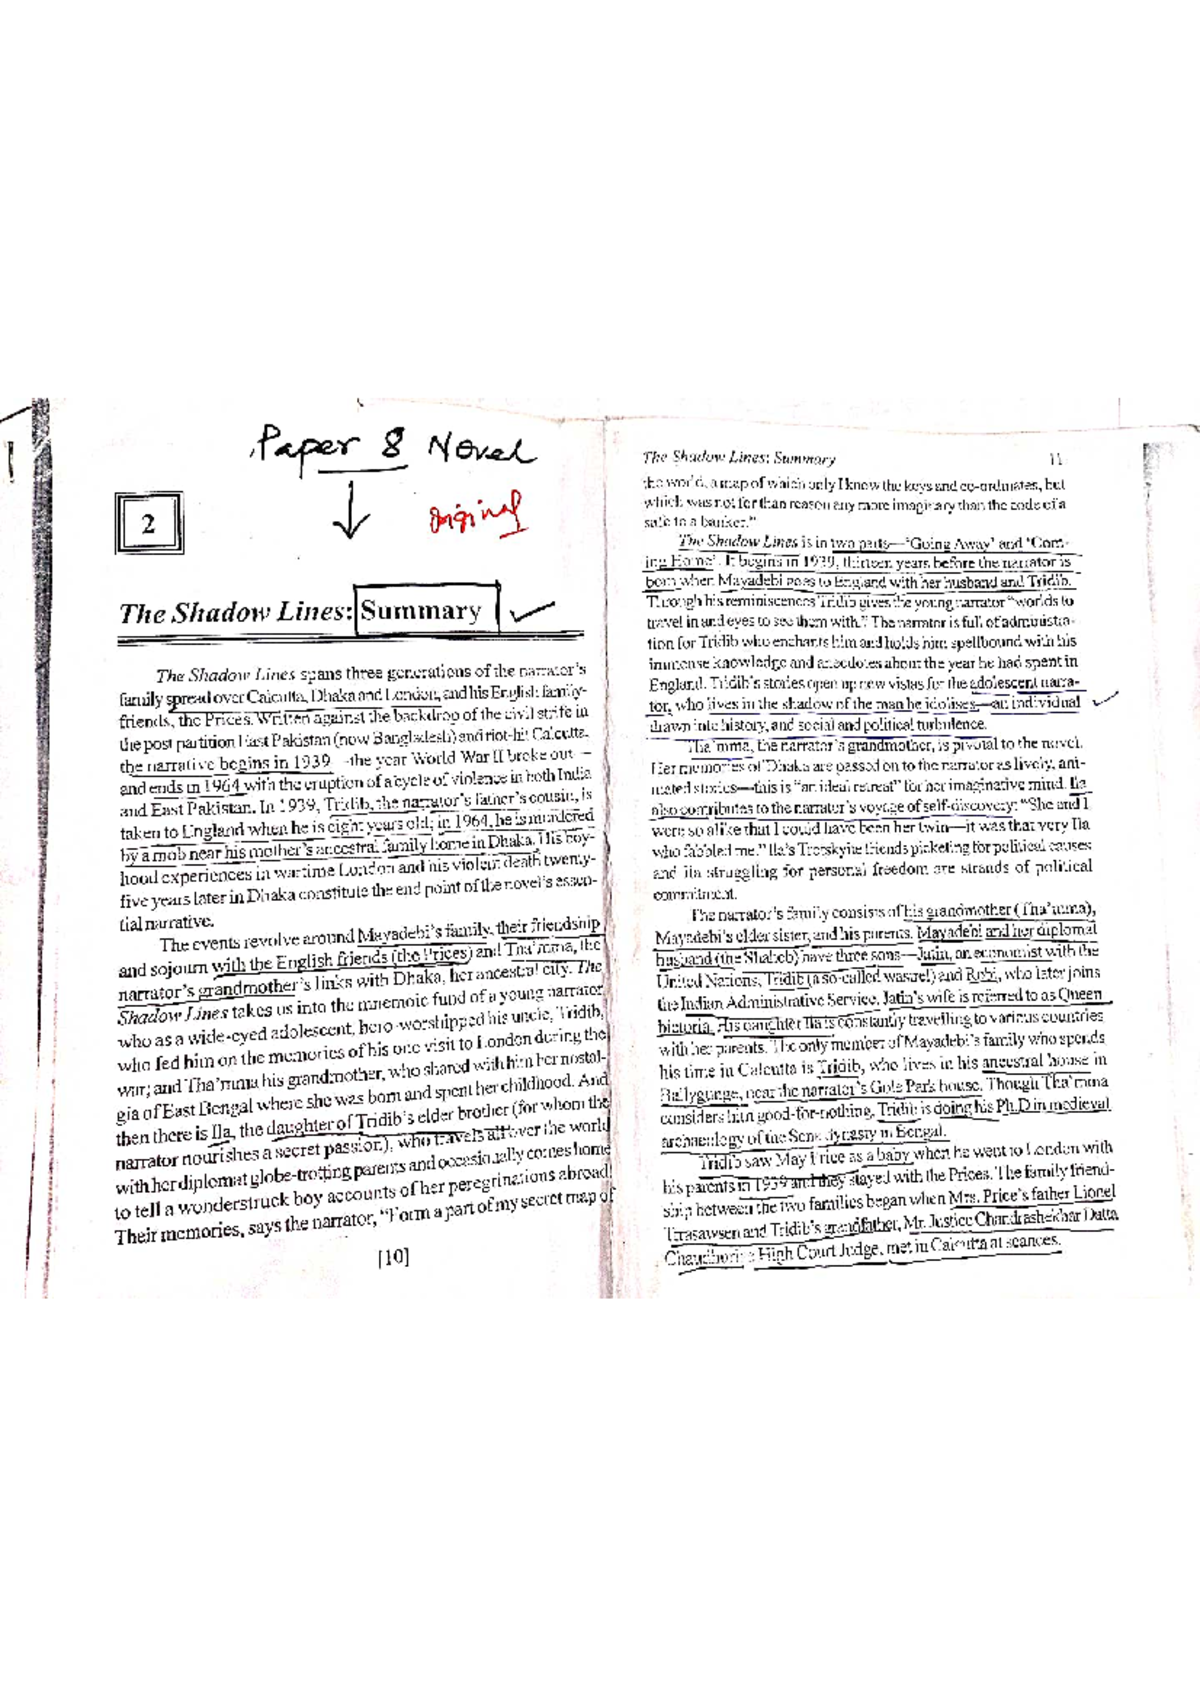 Paper 8 Novel
Original
2
The Shadow Lines: Summary
The Shadow Lines spans three generations of the narrator's
family spread over Calcutta, Dhaka and London, and his English family-
friends, the Prices. Written against the backdrop of the civil strife in
the post partition East Pakistan (now Bangladesh) and riot-hit Calcutta,
the narrative begins in 1939 —the year World War II broke out—
and ends in 1964 with the eruption of a cycle of violence in both India
and East Pakistan. In 1939, Tridib, the narrator's father's cousin, is
taken to England when he is eight years old; in 1964, he is murdered
by a mob near his mother's ancestral family home in Dhaka. His boy-
hood experiences in wartime London and his violent death twenty-
five years later in Dhaka constitute the end point of the novel's essen-
tial narrative.
The events revolve around Mayadebi's family, their friendship
and sojourn with the English friends (the Prices) and Tha'mma, the
narrator's grandmother's links with Dhaka, her ancestral city. The
Shadow Lines takes us into the mnemoic fund of a young narrator
who as a wide-eyed adolescent, hero-worshipped his uncle, Tridib,
who fed him on the memories of his one visit to London during the
war; and Tha'mma his grandmother, who shared with him her nostal-
gia of East Bengal where she was born and spent her childhood. And
then there is Ila, the daughter of Tridib's elder brother (for whom the
narrator nourishes a secret passion), who travels all over the world
with her diplomat globe-trotting parents and occasionally comes home
to tell a wonderstruck boy accounts of her peregrinations abroad
Their memories, says the narrator, "Form a part of my secret map of
[10]
The Shadow Lines: Summary 11
the world, a map of which only I know the keys and co-ordinates, but
which was not for than reason any more imaginary than the code of a
safe to a banker."
The Shadow Lines is in two parts—'Going Away' and 'Com-
ing Home'. It begins in 1939, thirteen years before the narrator is
born when Mayadebi goes to England with her husband and Tridib.
Through his reminiscences Tridib gives the young narrator "worlds to
travel in and eyes to see them with." The narrator is full of
tion for Tridib who enchants him and holds him spellbound with his
immense knowledge and anecdotes about the year he had spent in
England. Tridib's stories open up new vistas for the adolescent narra-
tor, who lives in the shadow of the man he idolises—an individual
drawn into history, and social and political turbulence.
Tha'mma, the narrator's grandmother, is pivotal to the novel.
Her memories of Dhaka are passed on to the narrator as lively, ani-
mated stories—this is "an ideal retreat" for her imaginative mind. Ila
also contributes to the narrator's voyage of self-discovery: "She and I
were so alike that I could have been her twin—it was that very Ila
who me." Ila's Trotskyite friends picketing for political causes
and Ila struggling for personal freedom are strands of political
commitment.
The narrator's family consists of his grandmother (Tha'mma),
Mayadebi's elder sister, and his parents. Mayadebi and her diplomat
husband (the Shaheb) have three sons—Jatin, an economist with the
United Nations, Tridib (a so-called wastrel) and Robi, who later joins
the Indian Administrative Service. Jatin's wife is referred to as Queen
Victoria. His daughter Ila is constantly travelling to various countries
with her parents. The only member of Mayadebi's family who spends
his time in Calcutta is Tridib, who lives in his ancestral house in
Ballygunge, near the narrator's Gole Park house. Though Tha'mma
considers him good-for-nothing, Tridib is doing his Ph.D in medieval
archaeology of the Sena dynasty in Bengal.
Tridib saw May Price as a baby when he went to London with
his parents in 1939 and they stayed with the Prices. The family friend-
ship between the two families began when Mrs. Price's father Lionel
Tresawsen and Tridib's grandfather, Mr. Justice Chandrashekhar Datta
Chaudhuri, a High Court Judge, met in Calcutta at seances.